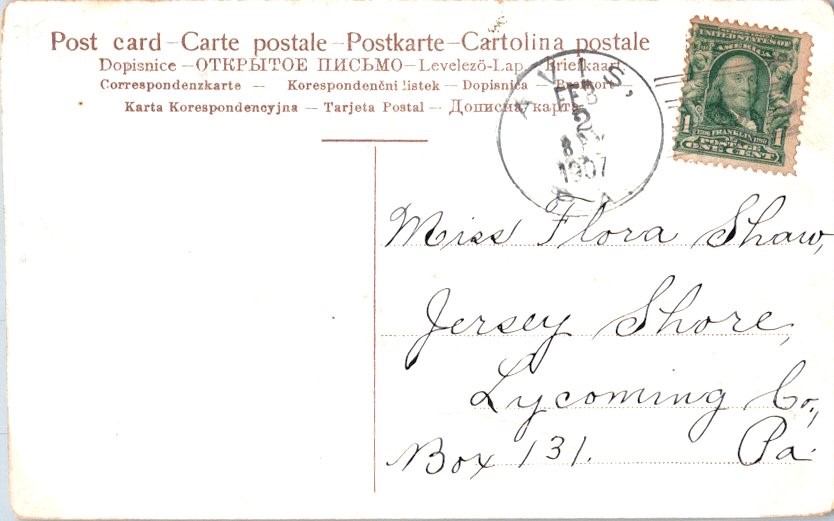 Post card – Carte postale – Postkarte – Cartolina postale
Dopisnice – ОТКРЫТОЕ ПИСЬМО – Levelezö-Lap – Briefkaart
Correspondenzkarte — Korespondenční listek – Dopisnica – Brefkort
Karta Korespondencyjna – Tarjeta Postal – Дописна карта
AVIS, PA.
FEB
2
1907
UNITED STATES OF
AMERICA
FRANKLIN
1 POSTAGE 1
ONE CENT
Miss Flora Shaw,
Jersey Shore,
Lycoming Co.,
Box 131. Pa.